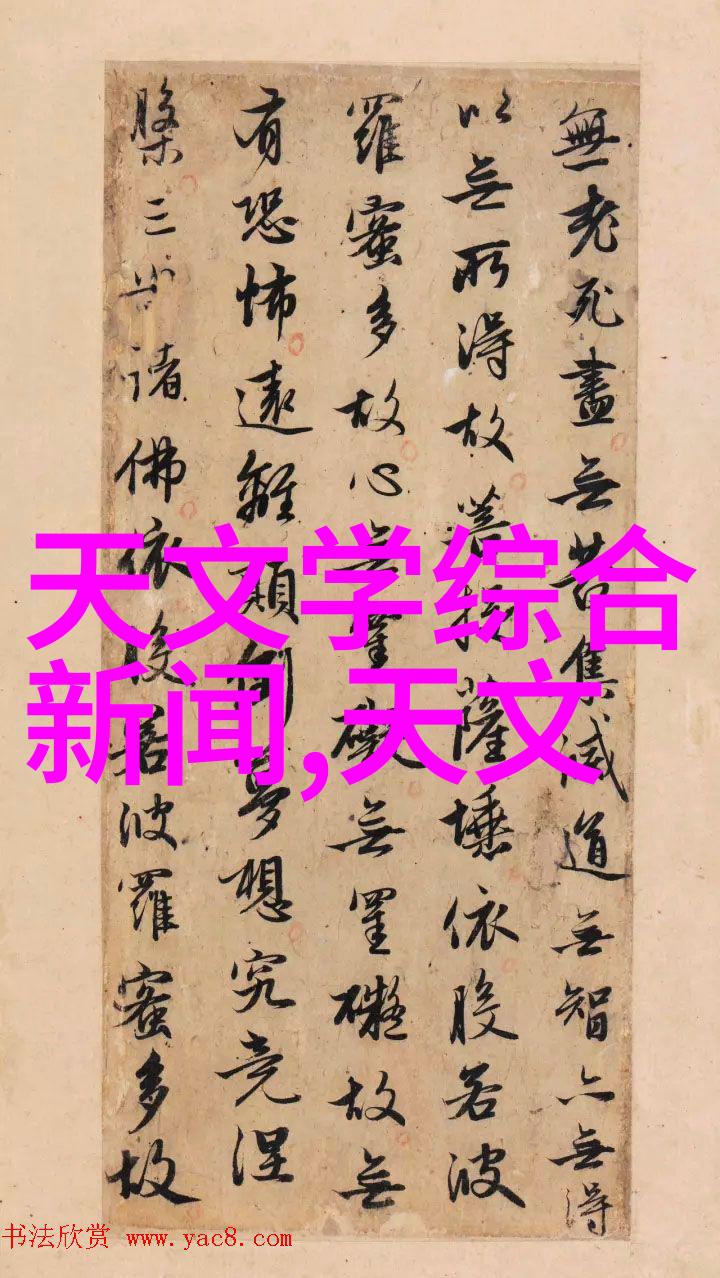 無老死盡无苦集滅道无智亦無得
以无所得故菩提薩埵依般若波
羅蜜多故心无罣礙无罣礙故无
有恐怖遠離顛倒夢想究竟涅
槃三世諸佛依般若波羅蜜多故
天文学综合
新闻,天文
书法欣赏 www.yac8.com